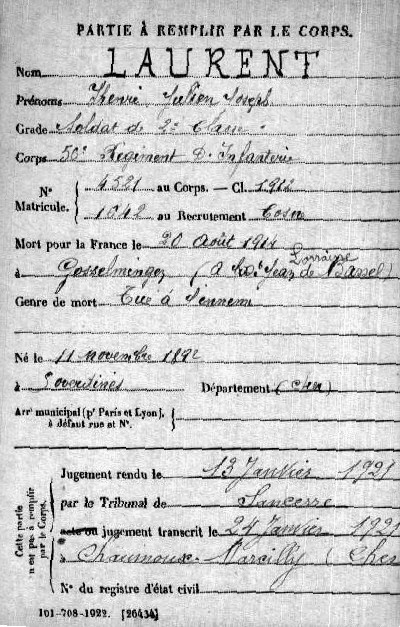 PARTIE À REMPLIR PAR LE CORPS.
Nom LAURENT
Prénoms Henri Julien Joseph
Grade Soldat de 2e Classe
Corps 56e Régiment D'Infanterie
N° Matricule. { 4521 au Corps. — Cl. 1912
1042 au Recrutement Cosne
Mort pour la France le 20 Août 1914
à Gosselmingen (à St Jean de Bassel) Lorraine
Genre de mort Tué à l'ennemi
Né le 11 novembre 1892
à Département (Cher)
Arrt municipal (pr Paris et Lyon), à défaut rue et N°. {
Cette partie n'est pas à remplir par le Corps.
Jugement rendu le 13 Janvier 1921
par le Tribunal de Sancerre
acte ou jugement transcrit le 24 Janvier 1921
à Chaumoux-Marcilly (Cher
N° du registre d'état civil
101-708-1922. [26434]